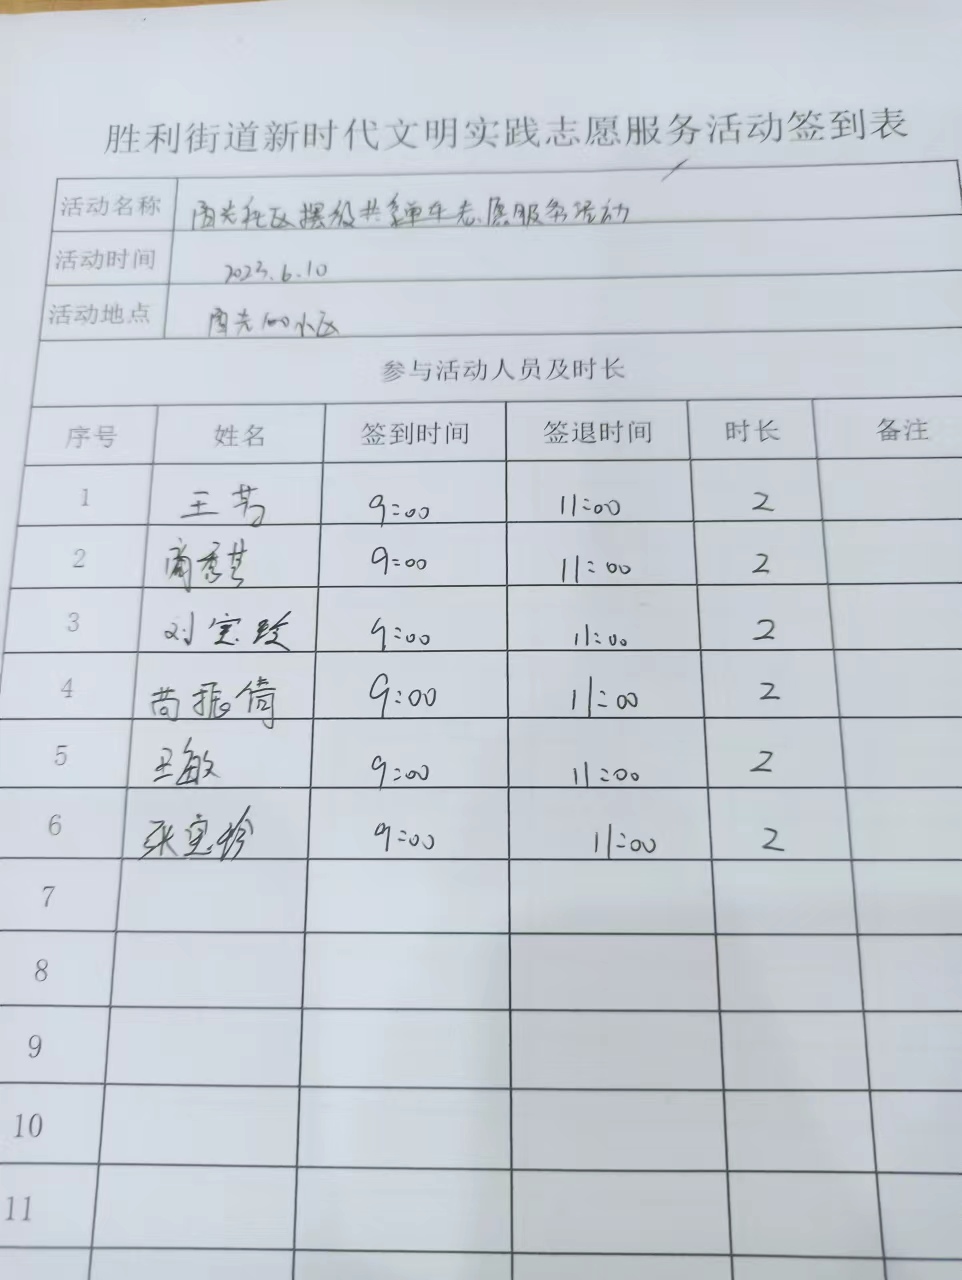 胜利街道新时代文明实践志愿服务活动签到表
活动名称 社区摆放共享单车志愿服务活动
活动时间 2023.6.10
活动地点 小区
参与活动人员及时长
序号 姓名 签到时间 签退时间 时长 备注
1 王 9:00 11:00 2
2 9:00 11:00 2
3 刘宝珍 9:00 11:00 2
4 苗振倚 9:00 11:00 2
5 王敏 9:00 11:00 2
6 张宝珍 9:00 11:00 2
7
8
9
10
11